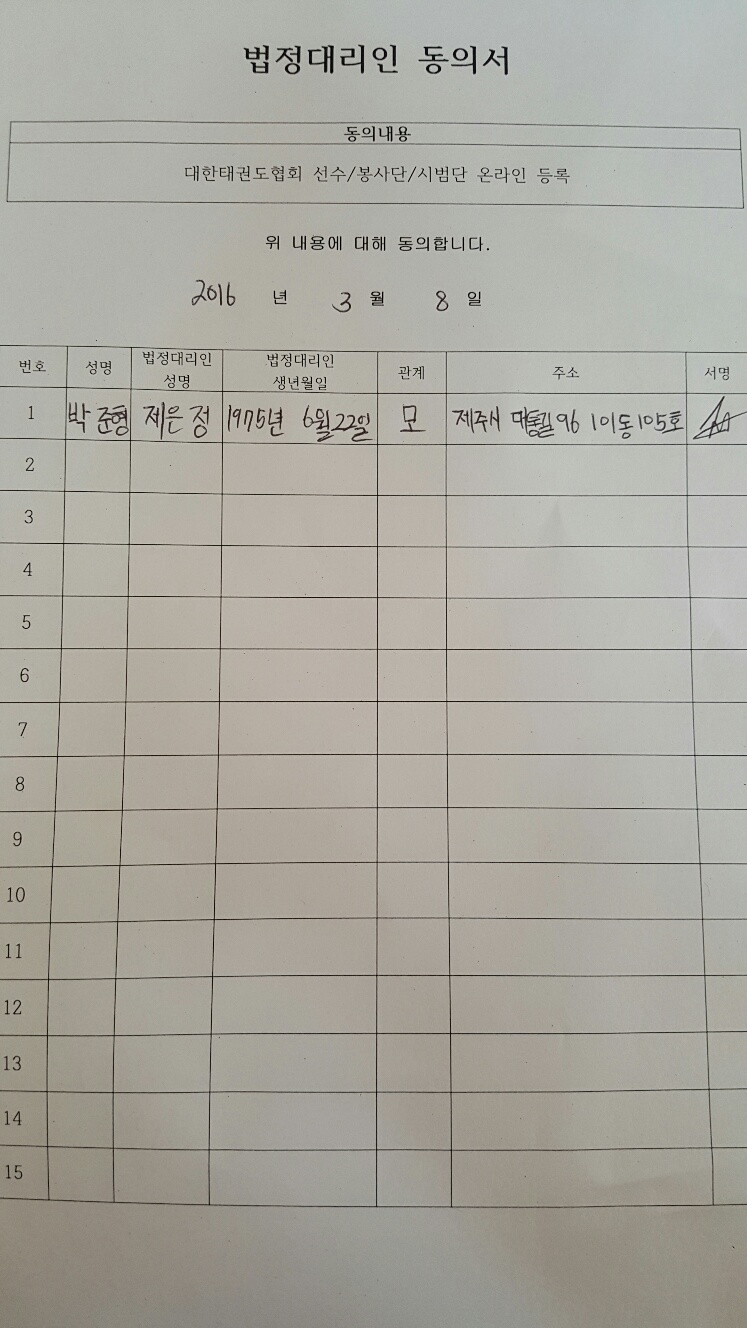 법정대리인 동의서
동의내용
대한태권도협회 선수/봉사단/시범단 온라인 등록
위 내용에 대해 동의합니다.
2016 년 3 월 8 일
번호 성명 법정대리인 성명 법정대리인 생년월일 관계 주소 서명
1 박준형 제은정 1975년 6월22일 모 제주시 96 101동 105호
2
3
4
5
6
7
8
9
10
11
12
13
14
15